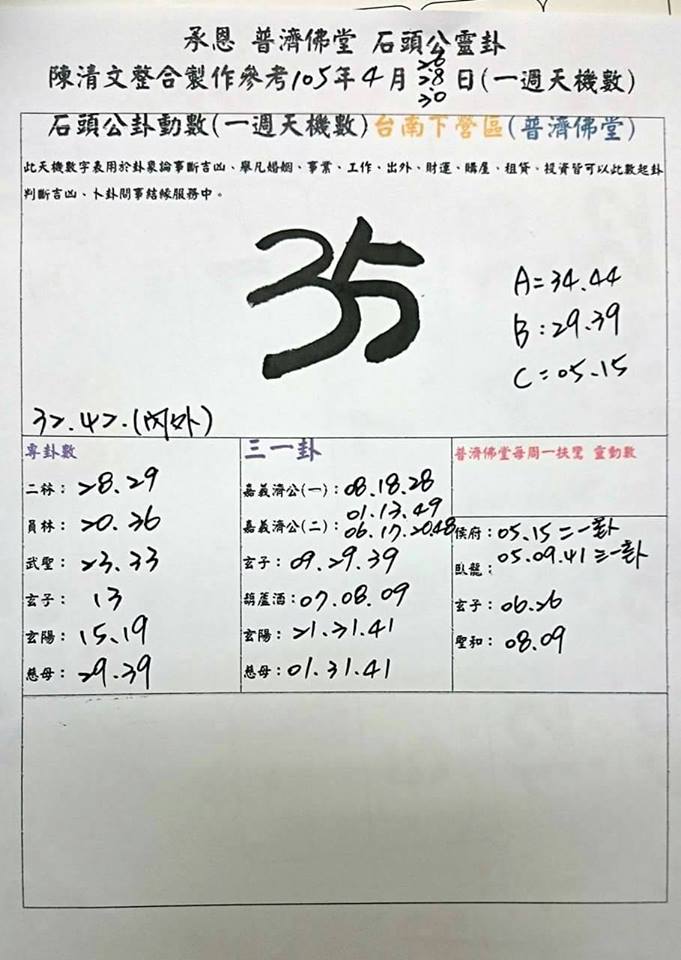 承恩 普濟佛堂 石頭公靈卦
陳清文整合製作參考105年4月26.28.30日(一週天機數)
石頭公卦動數(一週天機數)台南下營區(普濟佛堂)
此天機數字表用於卦象論事斷吉凶、舉凡婚姻、事業、工作、出外、財運、購屋、租貸、投資皆可以此數起卦
判斷吉凶、卜卦問事結緣服務中。
35
A=34.44
B:29.39
C=05.15
32.42.(內外)
專卦數
二林:28.29
員林:20.36
武聖:23.33
玄子: 13
玄陽:15.19
慈母:29.39
三一卦
嘉義濟公(一):08.18.28
01.13.49
嘉義濟公(二):06.17.20.48
玄子:09.29.39
葫蘆酒:07.08.09
玄陽:21.31.41
慈母:01.31.41
普濟佛堂每周一扶鸞 靈動數
侯府:05.15二一卦
臥龍:05.09.41三一卦
玄子:06.26
聖和:08.09